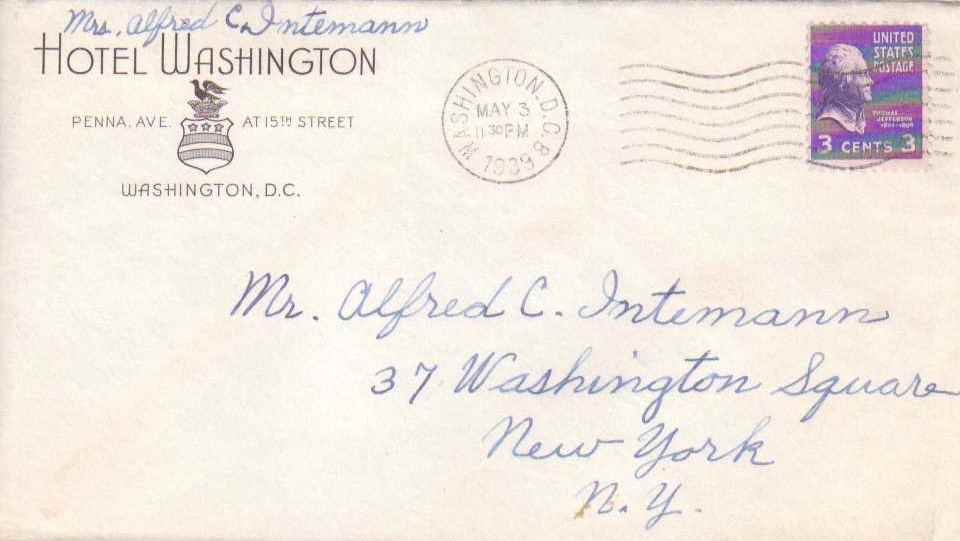 Mrs. Alfred C. Intemann
HOTEL WASHINGTON
PENNA. AVE. AT 15TH STREET
WASHINGTON, D.C.
WASHINGTON, D.C. 8
MAY 3
11 30 PM
1939
UNITED
STATES
POSTAGE
THOMAS
JEFFERSON
1801-1809
3 CENTS 3
Mr. Alfred C. Intemann
37 Washington Square
New York
N.Y.